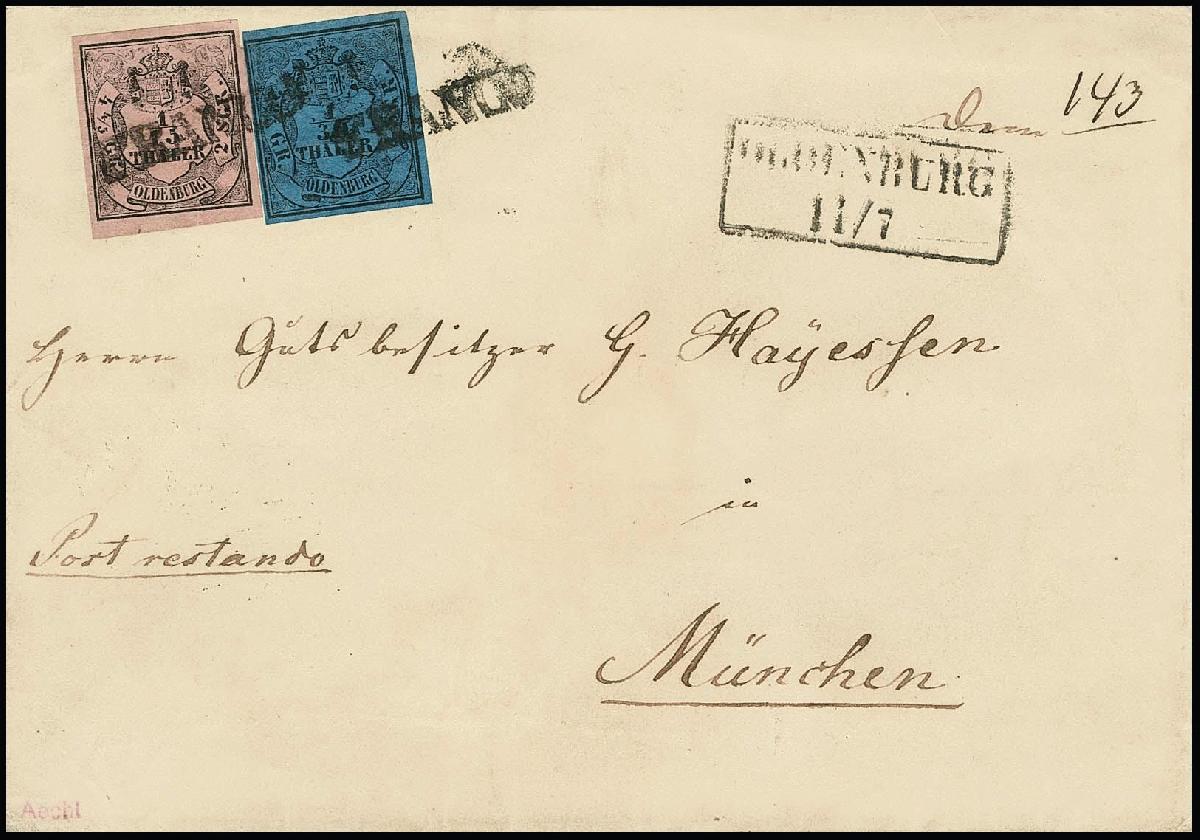 143
OLDENBURG
11/7
1/15
THALER
2 SGR.
OLDENBURG
1/30
THALER
OLDENBURG
FRANCO
Herrn Gutsbesitzer G. Hayessen
in
Post restando
München
Aecht